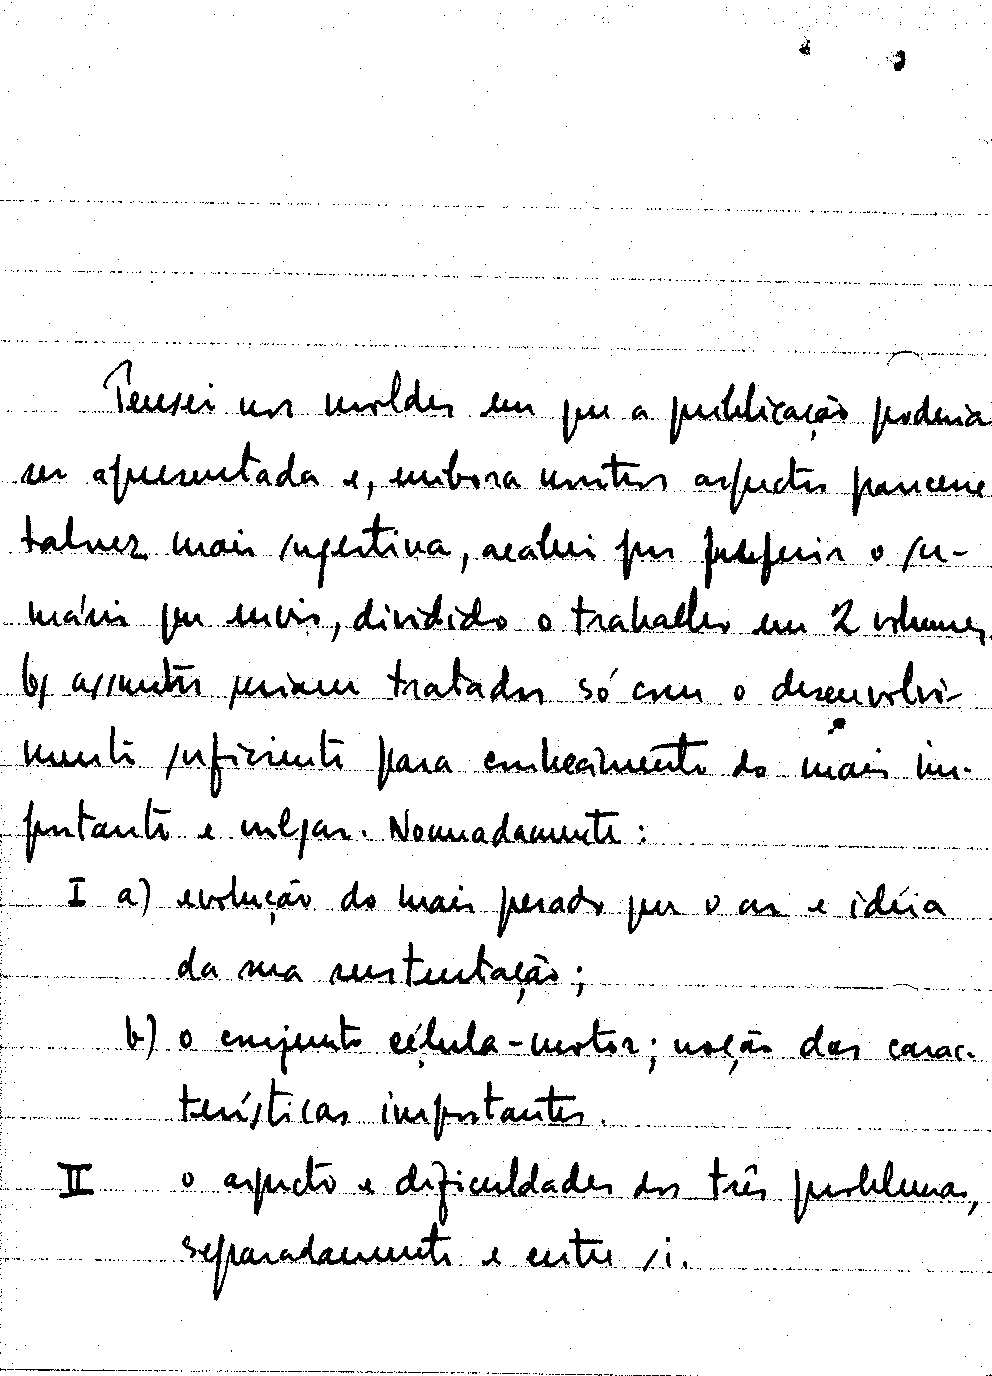 Pensei nos moldes em que a publicação poderia
ser apresentada e, embora noutros aspectos parecesse
talvez mais sugestiva, acabei por preferir o su-
mário que envio, dividido o trabalho em 2 volumes.
Os assuntos seriam tratados só com o desenvolvi-
mento suficiente para conhecimento do mais im-
portante e vulgar. Nomeadamente:
I a) evolução do mais pesado que o ar e idéia
da sua sustentação;
b) o conjunto célula-motor; noção das carac-
terísticas importantes.
II o aspecto e dificuldades dos três problemas,
separadamente e entre si.